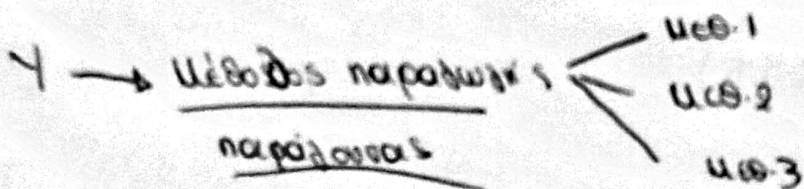 Υ → Μέθοδος παραγωγής
παράγουσας
μεθ. 1
μεθ. 2
μεθ. 3